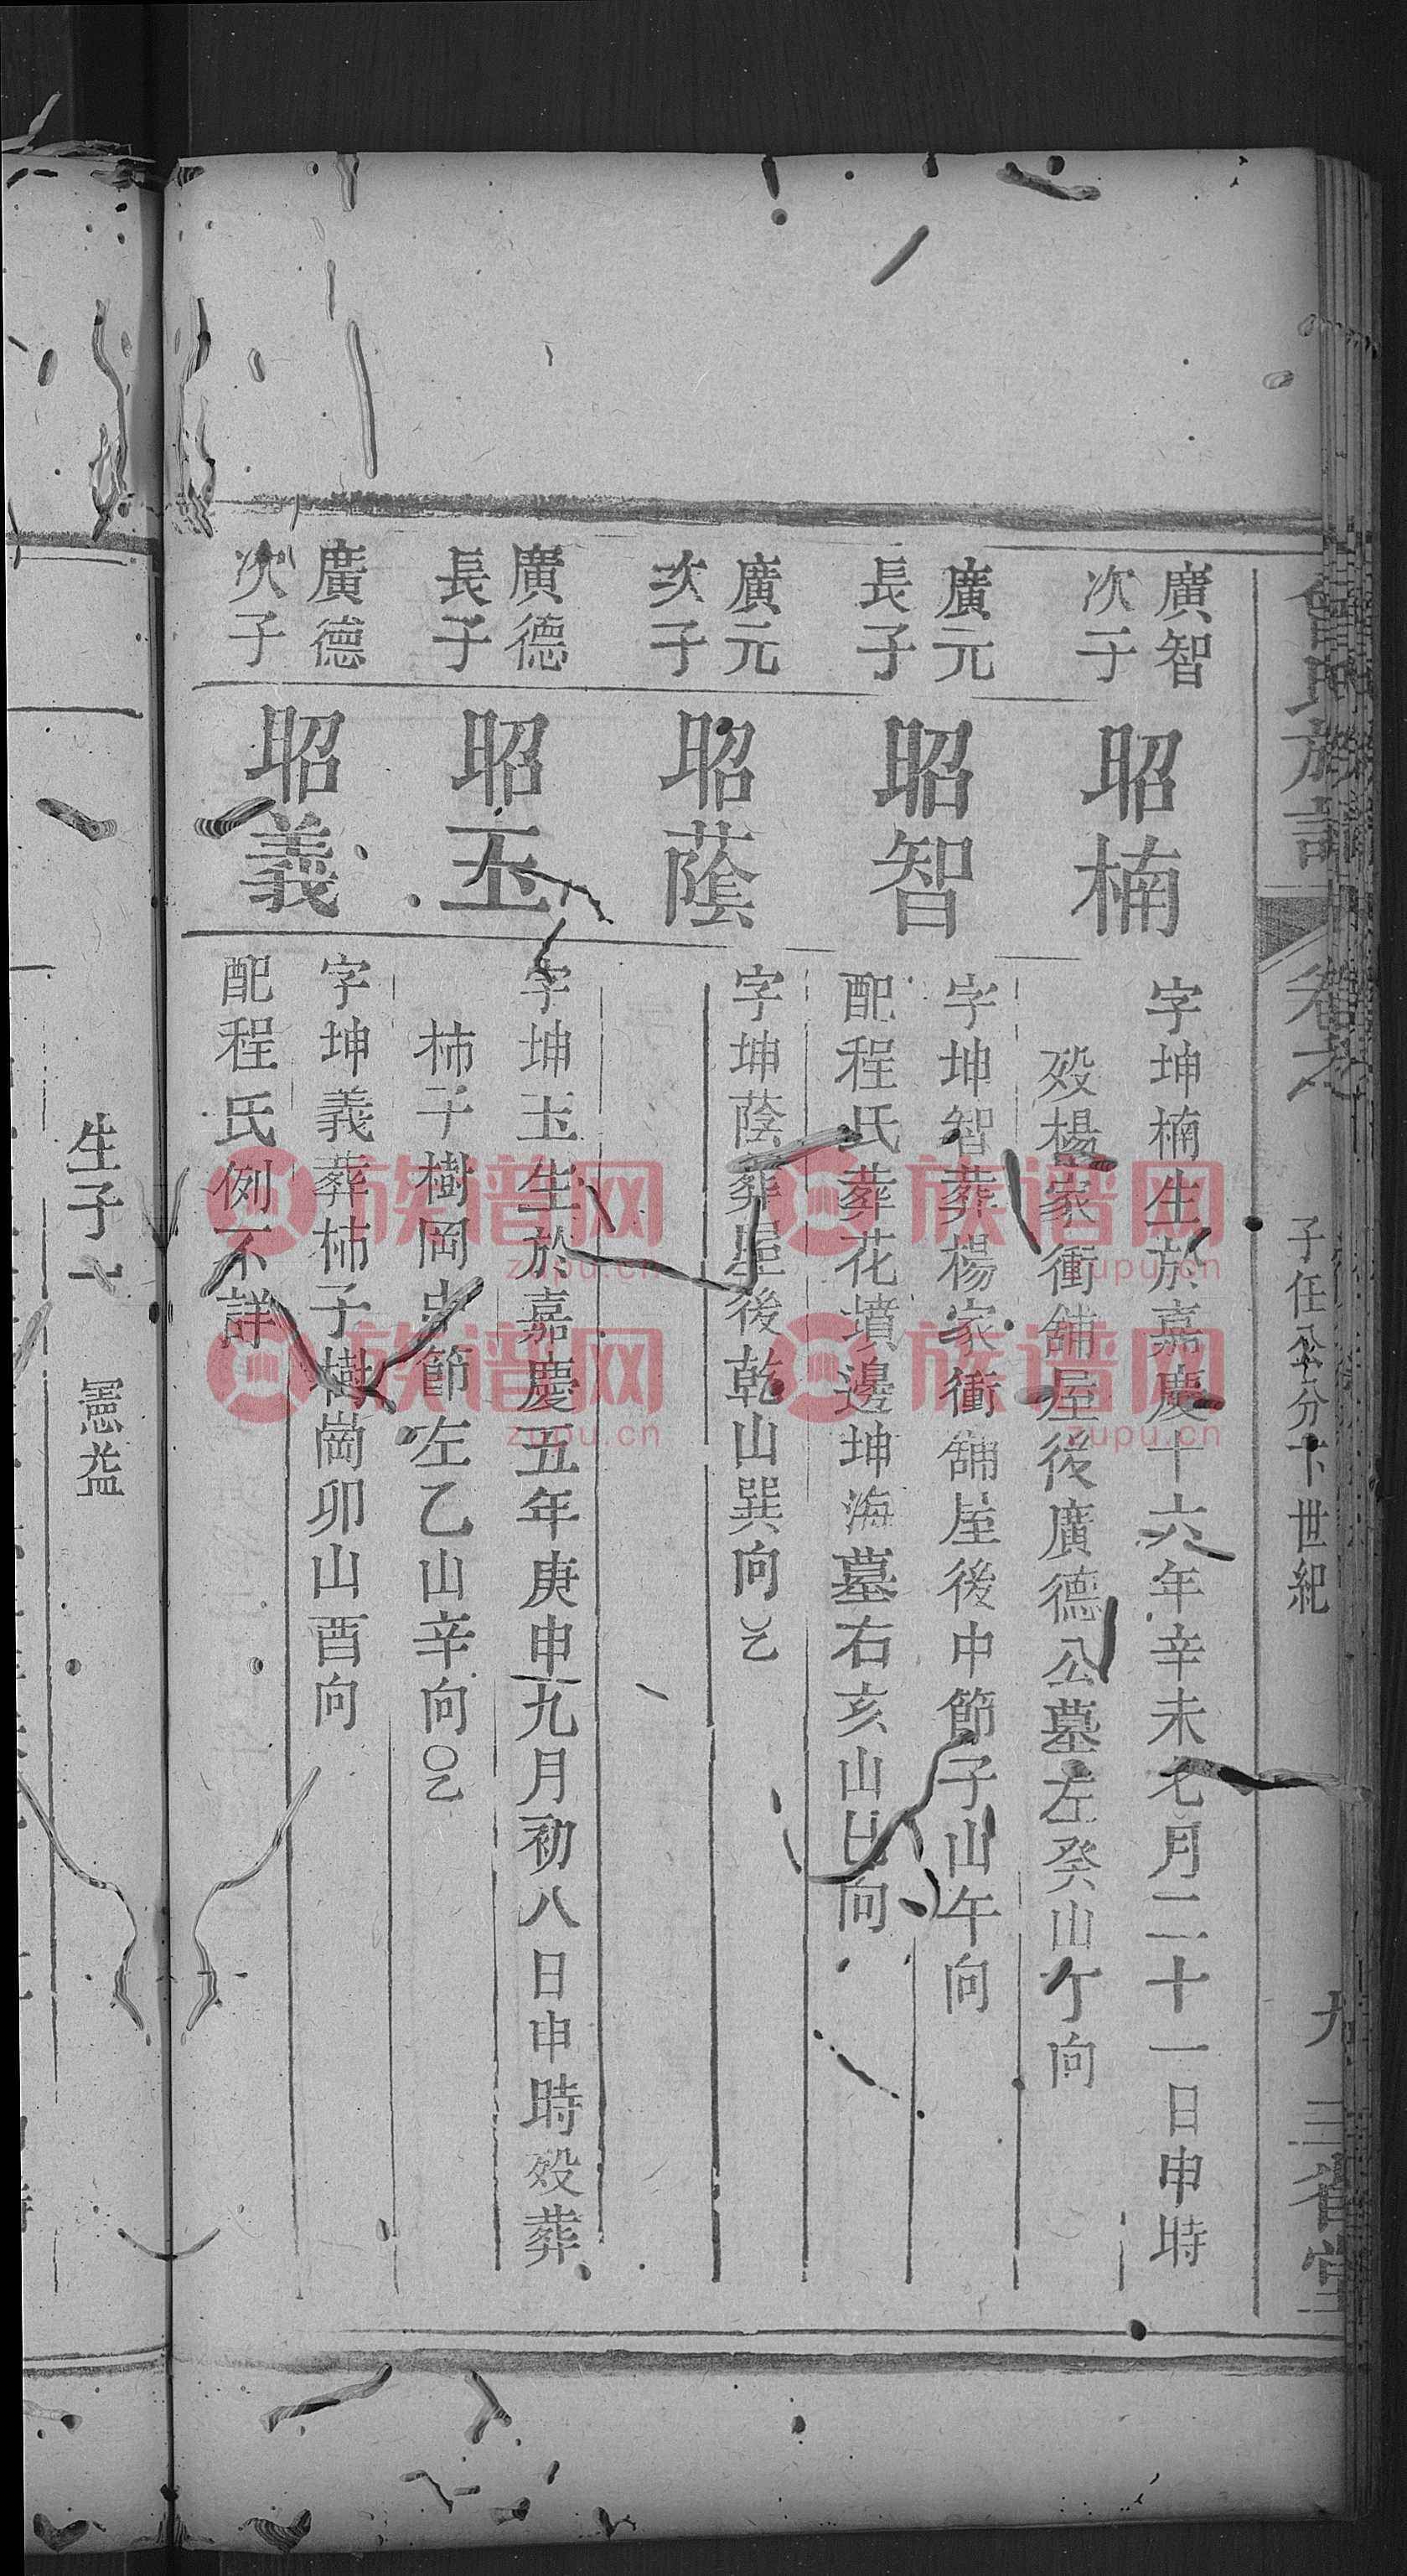 曾氏族譜
卷六
子任公分下世紀
九
三省堂
廣智
次子
昭楠
字坤楠生於嘉慶十六年辛未七月二十一日申時
歿楊家衝舖屋後廣德公墓左癸山丁向
廣元
長子
昭智
字坤智葬楊家衝舖屋後中節子山午向
配程氏葬花墳邊坤海墓右亥山巳向
廣元
次子
昭蔭
字坤蔭葬屋後乾山巽向
廣德
長子
昭玉
字坤玉生於嘉慶五年庚申九月初八日申時歿葬
柿子樹岡中節左乙山辛向
廣德
次子
昭義
字坤義葬柿子樹崗卯山酉向
配程氏例不詳
生子一
憲益
族谱网
zupu.cn
族谱网
zupu.cn
族谱网
zupu.cn
族谱网
zupu.cn